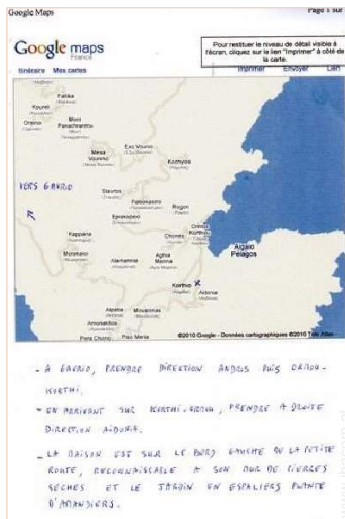 Google Maps
Page 1 sur
Google maps
France
Pour restituer le niveau de détail visible à
l'écran, cliquez sur le lien "Imprimer" à côté de
la carte.
Itinéraire Mes cartes
Imprimer Envoyer Lien
Katilia
Kourelí
Orsino
Moni
Panachrantou
Mesa
Vouniou
Exo Vouni
Kochylos
VERS GAVRIO
Stavros
Piskopeio
Rogon
Episkopeio
Kappária
Chones
Ormos
Korthiou
Aigaio
Pelagos
Moraitaioi
Alamannia
Aghia
Marina
Korthio
Aidonia
Aipatia
Mousionas
Amonakliou
Piera Chorio
Piso Meria
©2010 Google - Données cartographiques ©2010 Tele Atlas
- A GAVRIO, PRENDRE DIRECTION ANDROS PUIS ORMOU-
KORTHI.
- EN ARRIVANT SUR KORTHI-ORMOU, PRENDRE A DROITE
DIRECTION AIDONIA.
- LA MAISON EST SUR LE BORD GAUCHE DE LA PETITE
ROUTE, RECONNAISSABLE A SON MUR DE PIERRES
SECHES ET LE JARDIN EN ESPALIERS PLANTE
D'AMANDIERS.